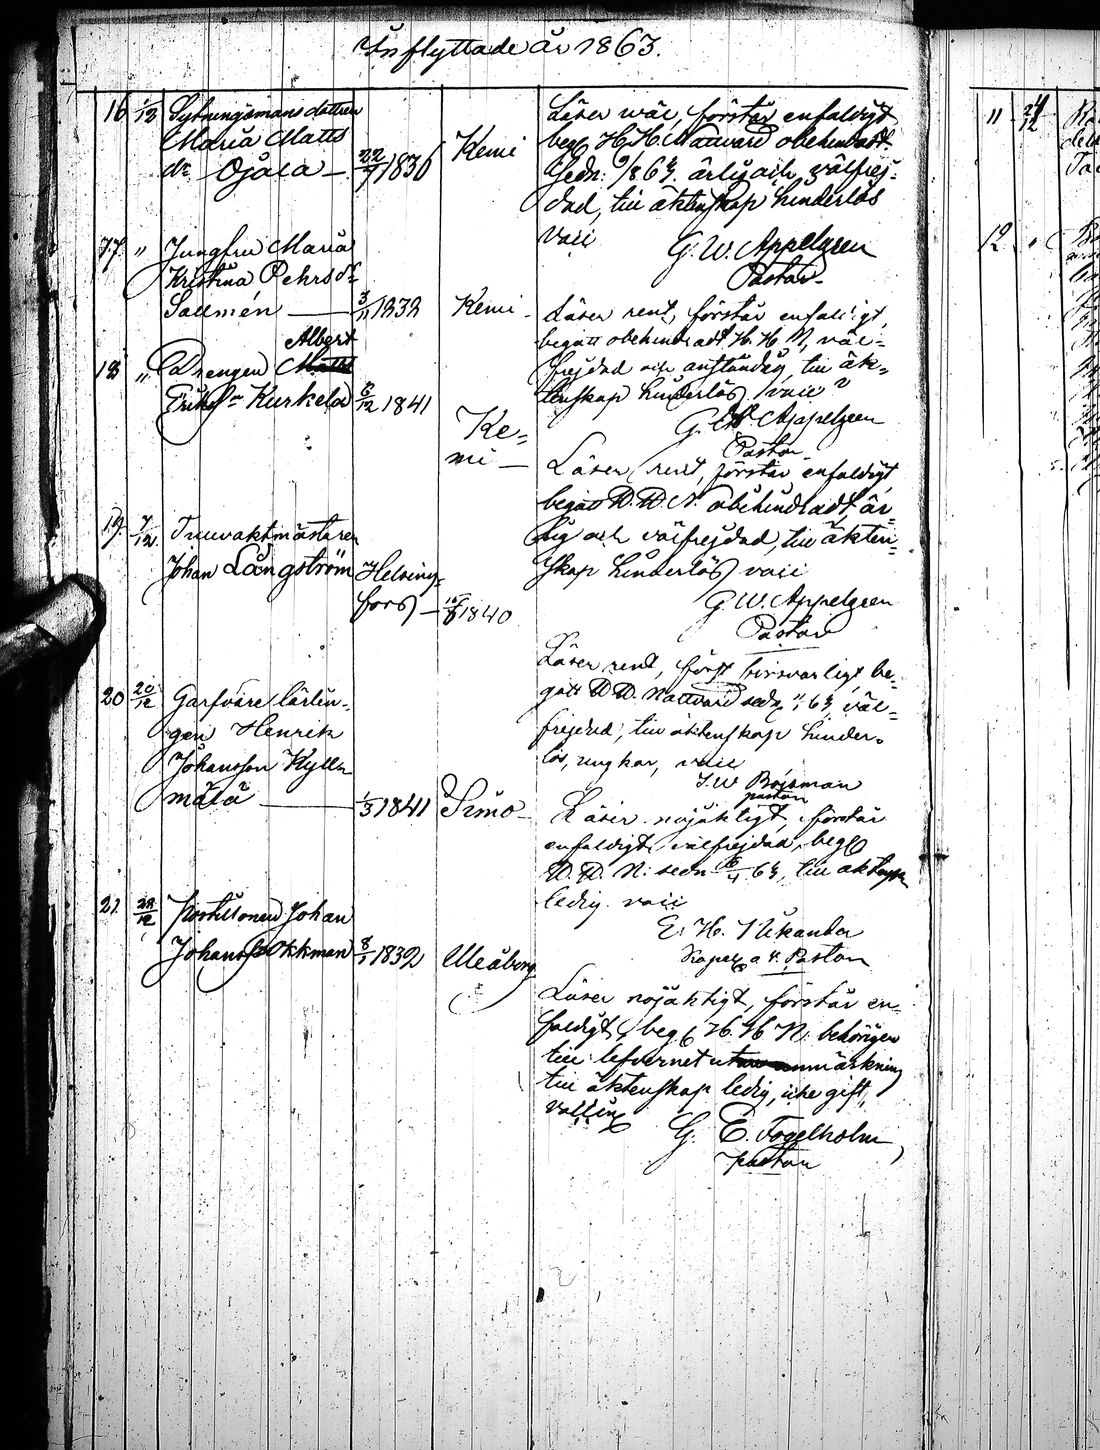 Inflyttade år 1863.
16 1/12 Sytningsmans dottren
Maria Matts
dr Ojala — 22/7 1836 Kemi
Läser wäl, förstår enfaldigt
beg. H. H. Nattvard obehindradt
sedn. 9/8 63. ärlig och välfrej=
dad, till äktenskap hinderlös
vale
G. W. Appelgren
Pastor
17. " Jungfru Maria
Kristina Pehrs dr
Sallmén — 3/11 1832 Kemi
Läser rent, förstår enfaldigt,
begått obehindradt H. H. N, väl=
frejdad och anständig, till äk=
tenskap hinderlös, vale
G. W. Appelgren
Pastor
18 " Drengen Albert
Eriks sn Kurkela 6/12 1841
Ke=
mi —
Läser rent, förstår enfaldigt
begått H. H. N. obehindradt, är=
lig och välfrejdad, till äkten=
skap hinderlös vale
G. W. Appelgren
Pastor
19. 7/12. Tullvaktmästaren
Johan Långström Helsing=
fors — 1840
Läser rent, förstår försvarligt be=
gått H. H. Nattvard 63, väl=
frejdad, till äktenskap hinder=
lös, ungkar, vale
J. W. Boisman
pastor
20 20/12 Garfvare lärlin=
gen Henrik
Johansson Kyllö=
mätä — 1/3 1841 Simo —
Läser nöjaktigt, förstår
enfaldigt, välfrejdad, beg.
H. H. N: sedn 63, till äktensk
ledig. vale
E. H. Pastor
21. 28/12 Postillonen Johan
Johanss Okkman 8/1 1832 Uleåborg
Läser nöjaktigt, förstår en=
faldigt, beg. H. H. N. behörigen
till lefvernet utan anmärkning
till äktenskap ledig, icke gift,
G. E. Fogelholm,
pastor
11 24/12
12. "